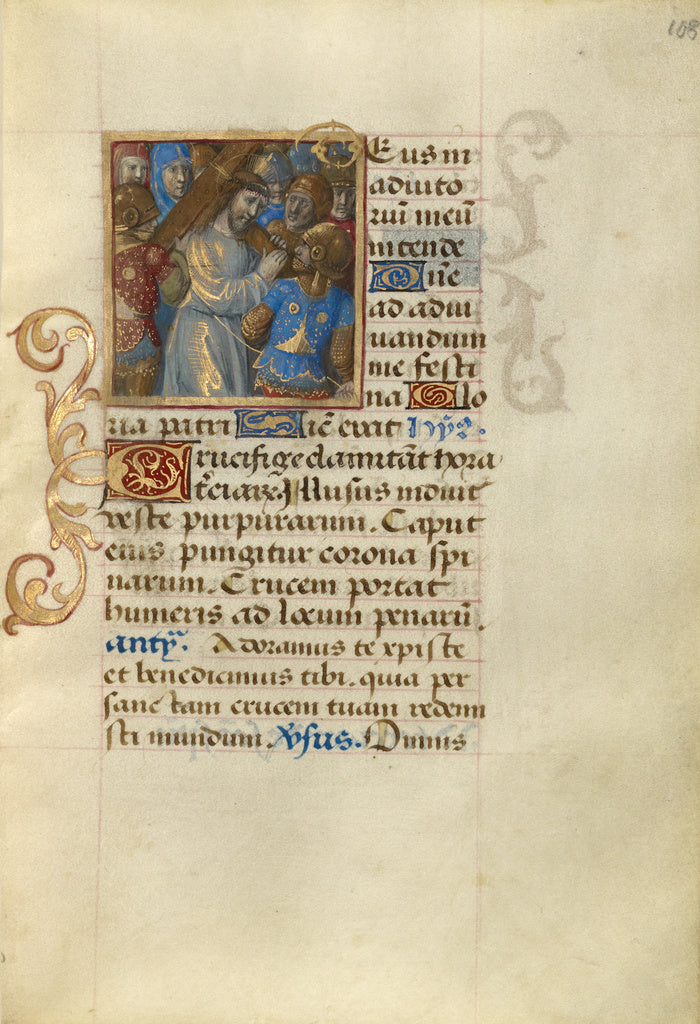 108
Eus in
adiuto
riū meū
intende
Dn̄e
ad adiu
uandum
me festi
na Glo
ria patri Sic̄ erat hyꝫ.
Crucifige clamitāt hora
t̄ciarꝫ Illusus induit᷑
veste purpurarum. Caput
eius pungitur corona spi
narum. Crucem portat
humeris ad locum penarū.
antyᵃ. Adoramus te xpiste
et benedicimus tibi. quia per
sanctam crucem tuam redemi
sti mundum. v̄sus. Dominus